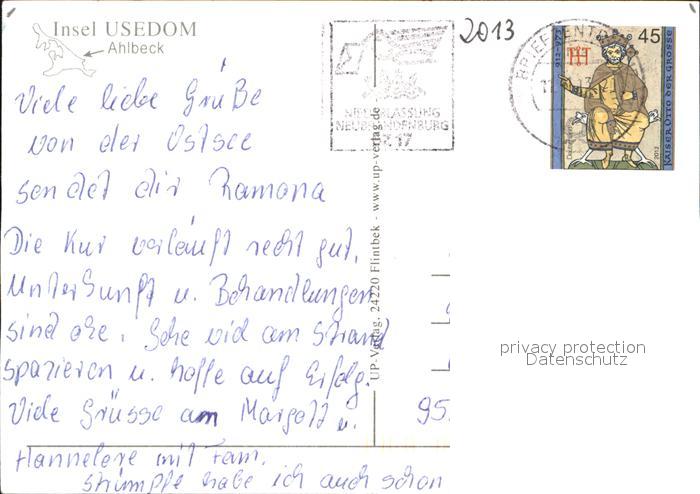 Insel USEDOM
Ahlbeck
2013
NIEDERLASSUNG
NEUBRANDENBURG
17
BRIEFZENTRUM
45
912-973
KAISER OTTO DER GROSSE
2012
Viele liebe Grüße
von der Ostsee
sendet dir Ramona
Die Kur verläuft recht gut.
Unterkunft u. Behandlungen
sind oke. Gehe viel am Strand
spazieren u. hoffe auf Erfolg.
Viele Grüsse an Margott u.
Hannelore mit Fam.
Strümpfe habe ich auch schon
95
UP-Verlag, 24220 Flintbek - www.up-verlag.de
privacy protection
Datenschutz